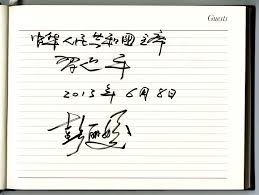 Guests
中华人民共和国主席
习近平
2013年6月8日
彭丽媛